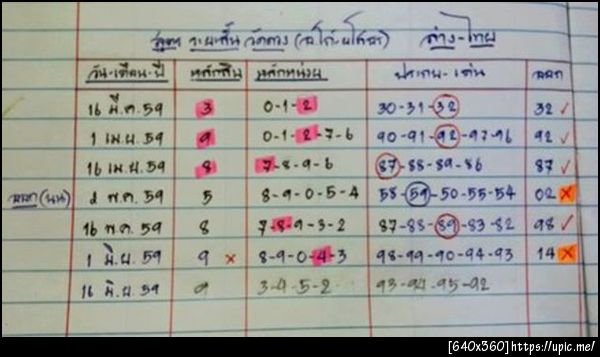 สูตร ระยะสั้น วัดดวง ( ) ล่าง-ไทย
วัน-เดือน-ปี หลักสิบ หลักหน่วย ประกบ-เด่น ออก
16 มี.ค. 59 3 0-1-2 30-31-32 32 ✓
1 เม.ย. 59 9 0-1-2-7-6 90-91-92-97-96 92 ✓
16 เม.ย. 59 8 7-8-9-6 87-88-89-86 87 ✓
2 พ.ค. 59 5 8-9-0-5-4 58-59-50-55-54 02 ×
16 พ.ค. 59 8 7-8-9-3-2 87-88-89-83-82 98 ✓
1 มิ.ย. 59 9 × 8-9-0-4-3 98-99-90-94-93 14 ×
16 มิ.ย. 59 9 3-4-5-2 93-94-95-92
[640x360]https://upic.me/